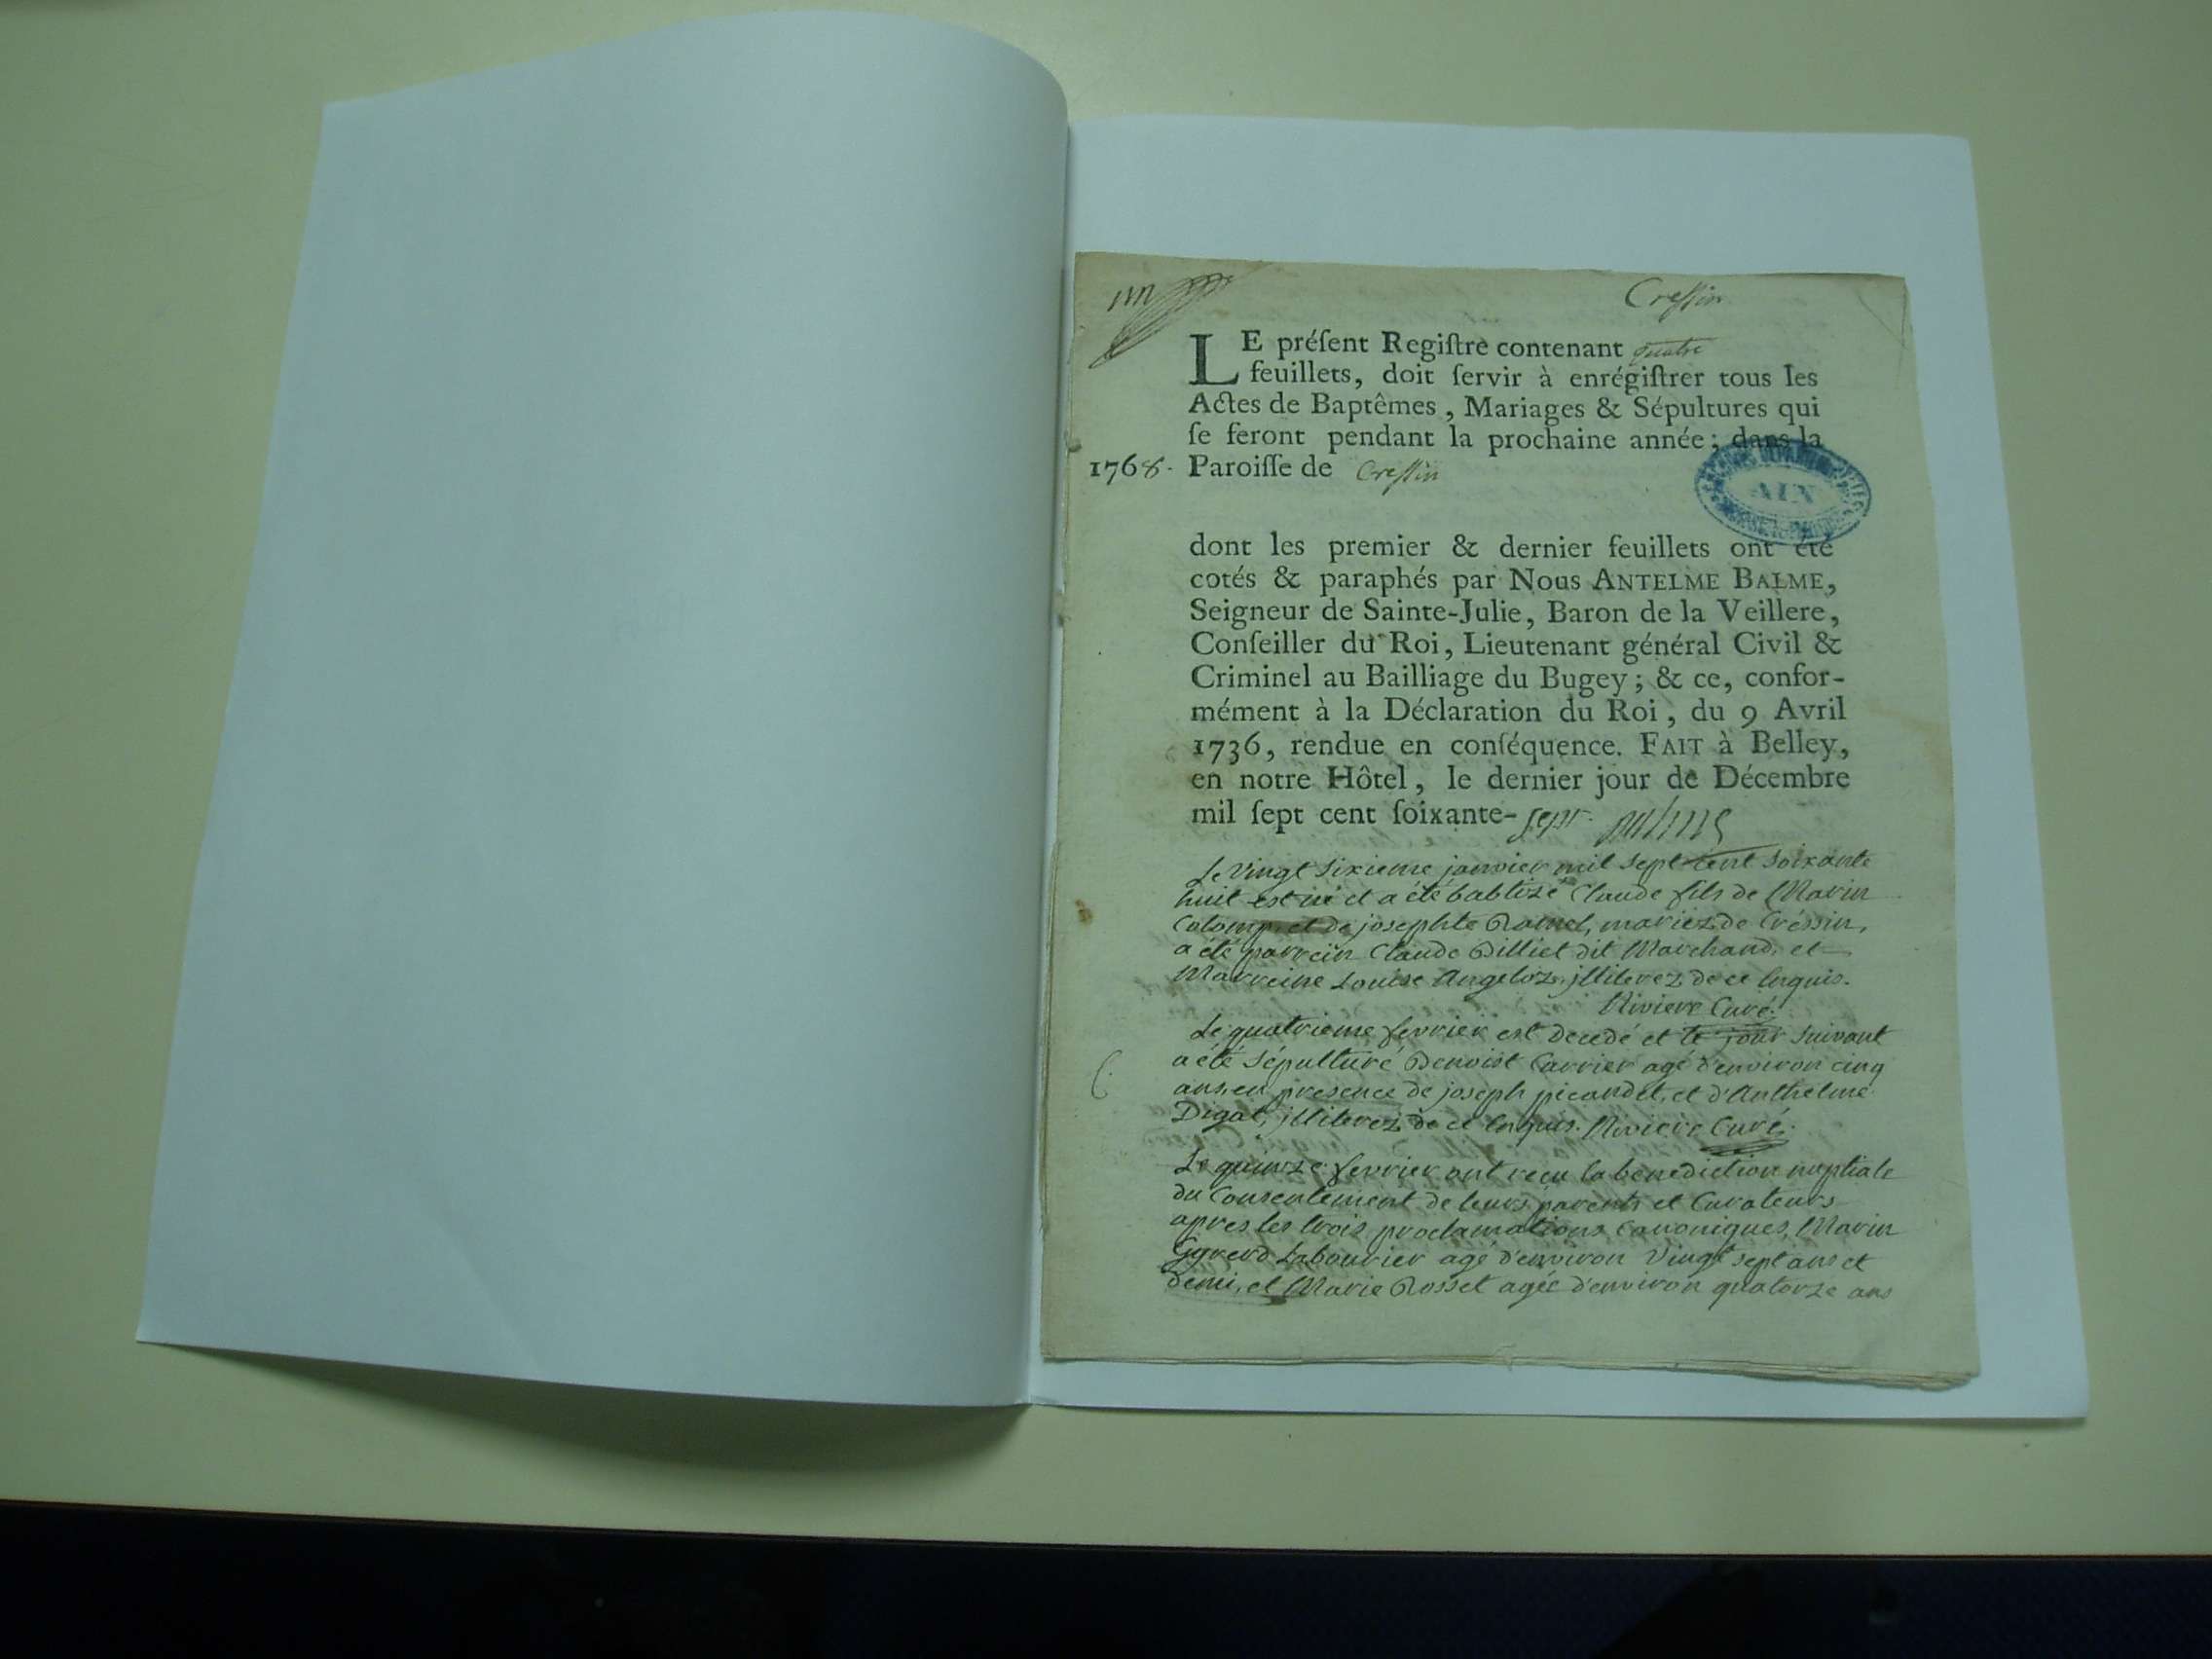 un
Cressin
LE préſent Regiſtre contenant quatre
feuillets, doit ſervir à enrégiſtrer tous les
Actes de Baptêmes, Mariages & Sépultures qui
ſe feront pendant la prochaine année; dans la
1768. Paroiſſe de Cressin
AIN
dont les premier & dernier feuillets ont été
cotés & paraphés par Nous ANTELME BALME,
Seigneur de Sainte-Julie, Baron de la Veillere,
Conſeiller du Roi, Lieutenant général Civil &
Criminel au Bailliage du Bugey; & ce, confor-
mément à la Déclaration du Roi, du 9 Avril
1736, rendue en conſéquence. FAIT à Belley,
en notre Hôtel, le dernier jour de Décembre
mil ſept cent ſoixante-sept.
Le vingt sixieme janvier mil sept cent soixante
huit est né et a été babtizé Claude fils de Marin
Colomp et de josephte mariez de Cressin,
a été parrein Claude Billiet dit Marchand, et
Marreine Louise Angeloz, illiterez de ce enquis.
Riviere Curé.
Le quatrieme fevrier est decedé et le jour suivant
a été sépulturé Benoist Carrier agé d'environ cinq
ans, en presence de joseph picandet, et d'Anthelme
Digat, illiterez de ce enquis. Riviere Curé.
Le quinze fevrier ont reçu la benediction nuptiale
du Consentement de leurs parents et Curateurs
apres les trois proclamations Canoniques, Marin
Labourier agé d'environ Vingt sept ans et
demi, et Marie Rosset agée d'environ quatorze ans